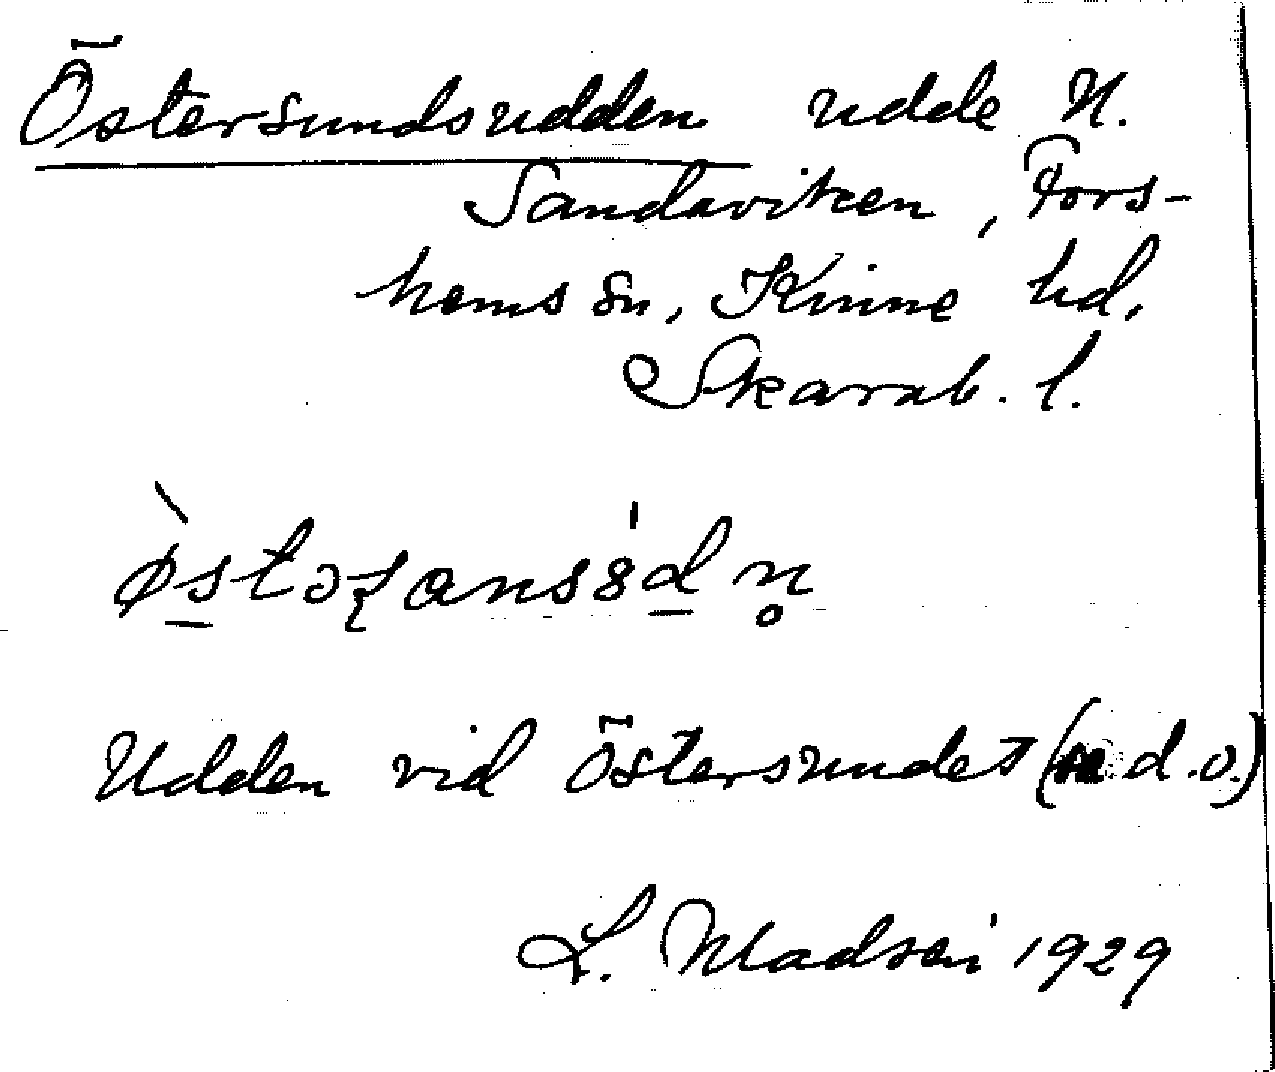 Östersundsudden udde N.
Sandaviken, Fors-
hems sn, Kinne hd,
Skarab. l.
Udden vid Östersundet (n.d.o.)
L. Madsén 1929